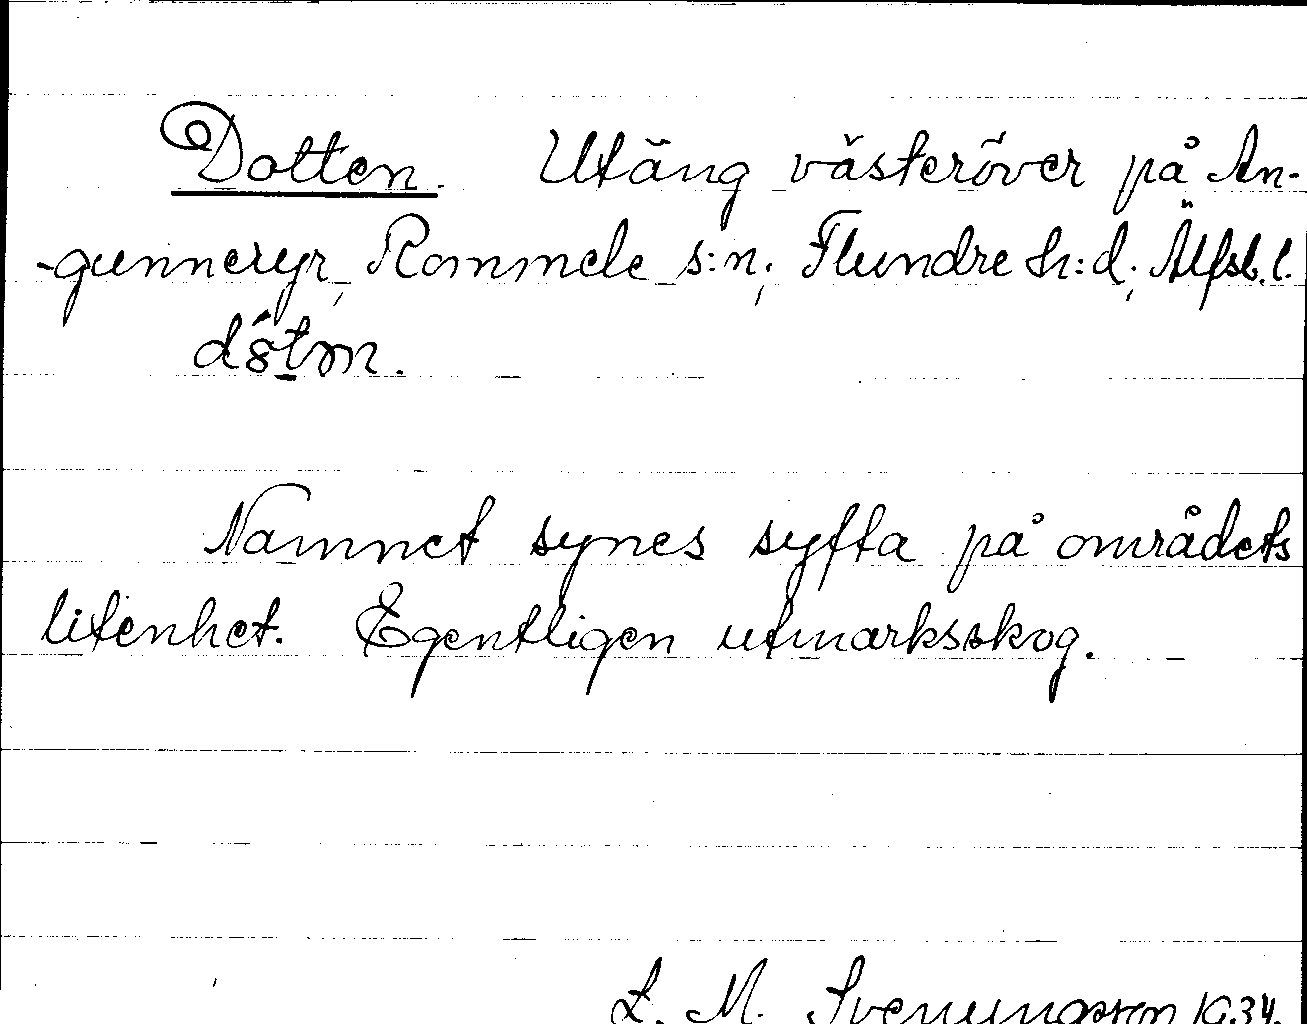 Dotten. Utäng västeröver på An-
-gunneryr, Rommele s:n, Flundre h:d, Älfsb. l.
Namnet synes syfta på områdets
litenhet. Egentligen utmarksskog.
L. M. Svenungsson 1934.